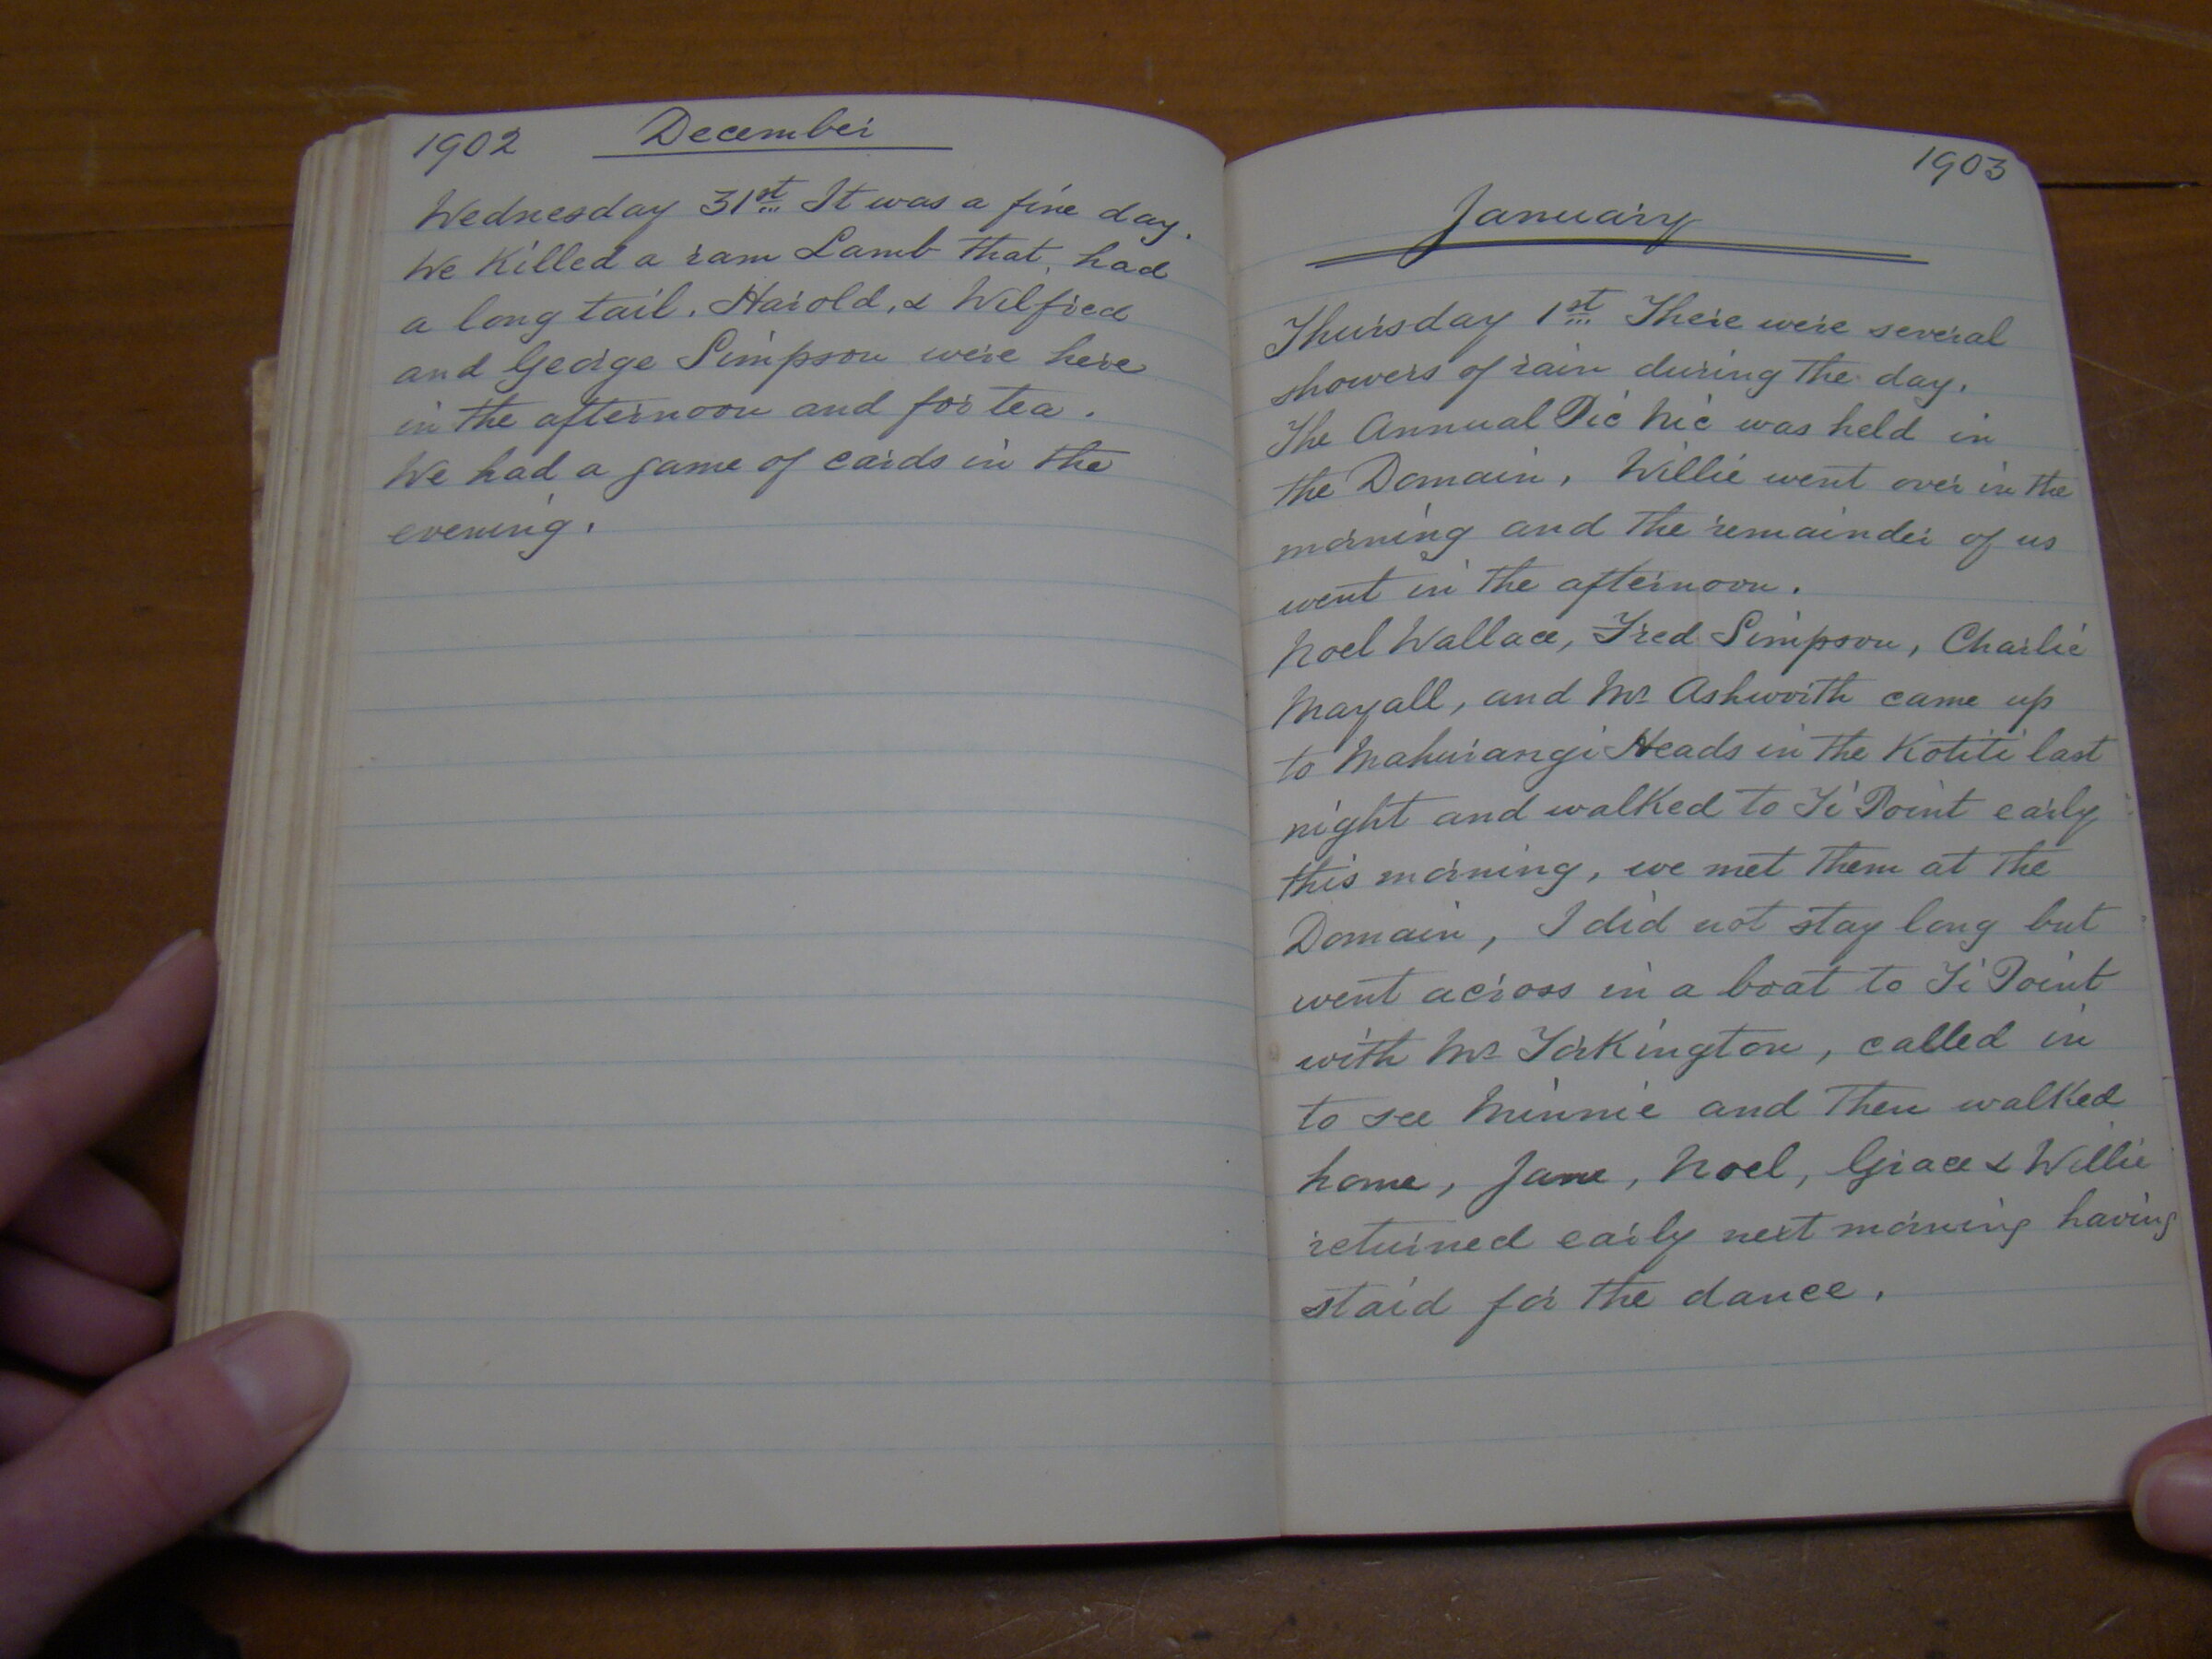 1902 December
Wednesday 31st It was a fine day.
We Killed a ram Lamb that had
a long tail. Harold, & Wilfred
and George Simpson were here
in the afternoon and for tea.
We had a game of cards in the
evening.
1903
January
Thursday 1st There were several
showers of rain during the day.
The Annual Pic Nic was held in
the Domain, Willie went over in the
morning and the remainder of us
went in the afternoon.
Noel Wallace, Fred Simpson, Charlie
Mayall, and Mr Ashworth came up
to Mahurangi Heads in the Kotiti last
night and walked to Ti Point early
this morning, we met them at the
Domain, I did not stay long but
went across in a boat to Ti Point
with Mr Torkington, called in
to see Minnie and then walked
home, Jane, Noel, Grace & Willie
returned early next morning having
staid for the dance.